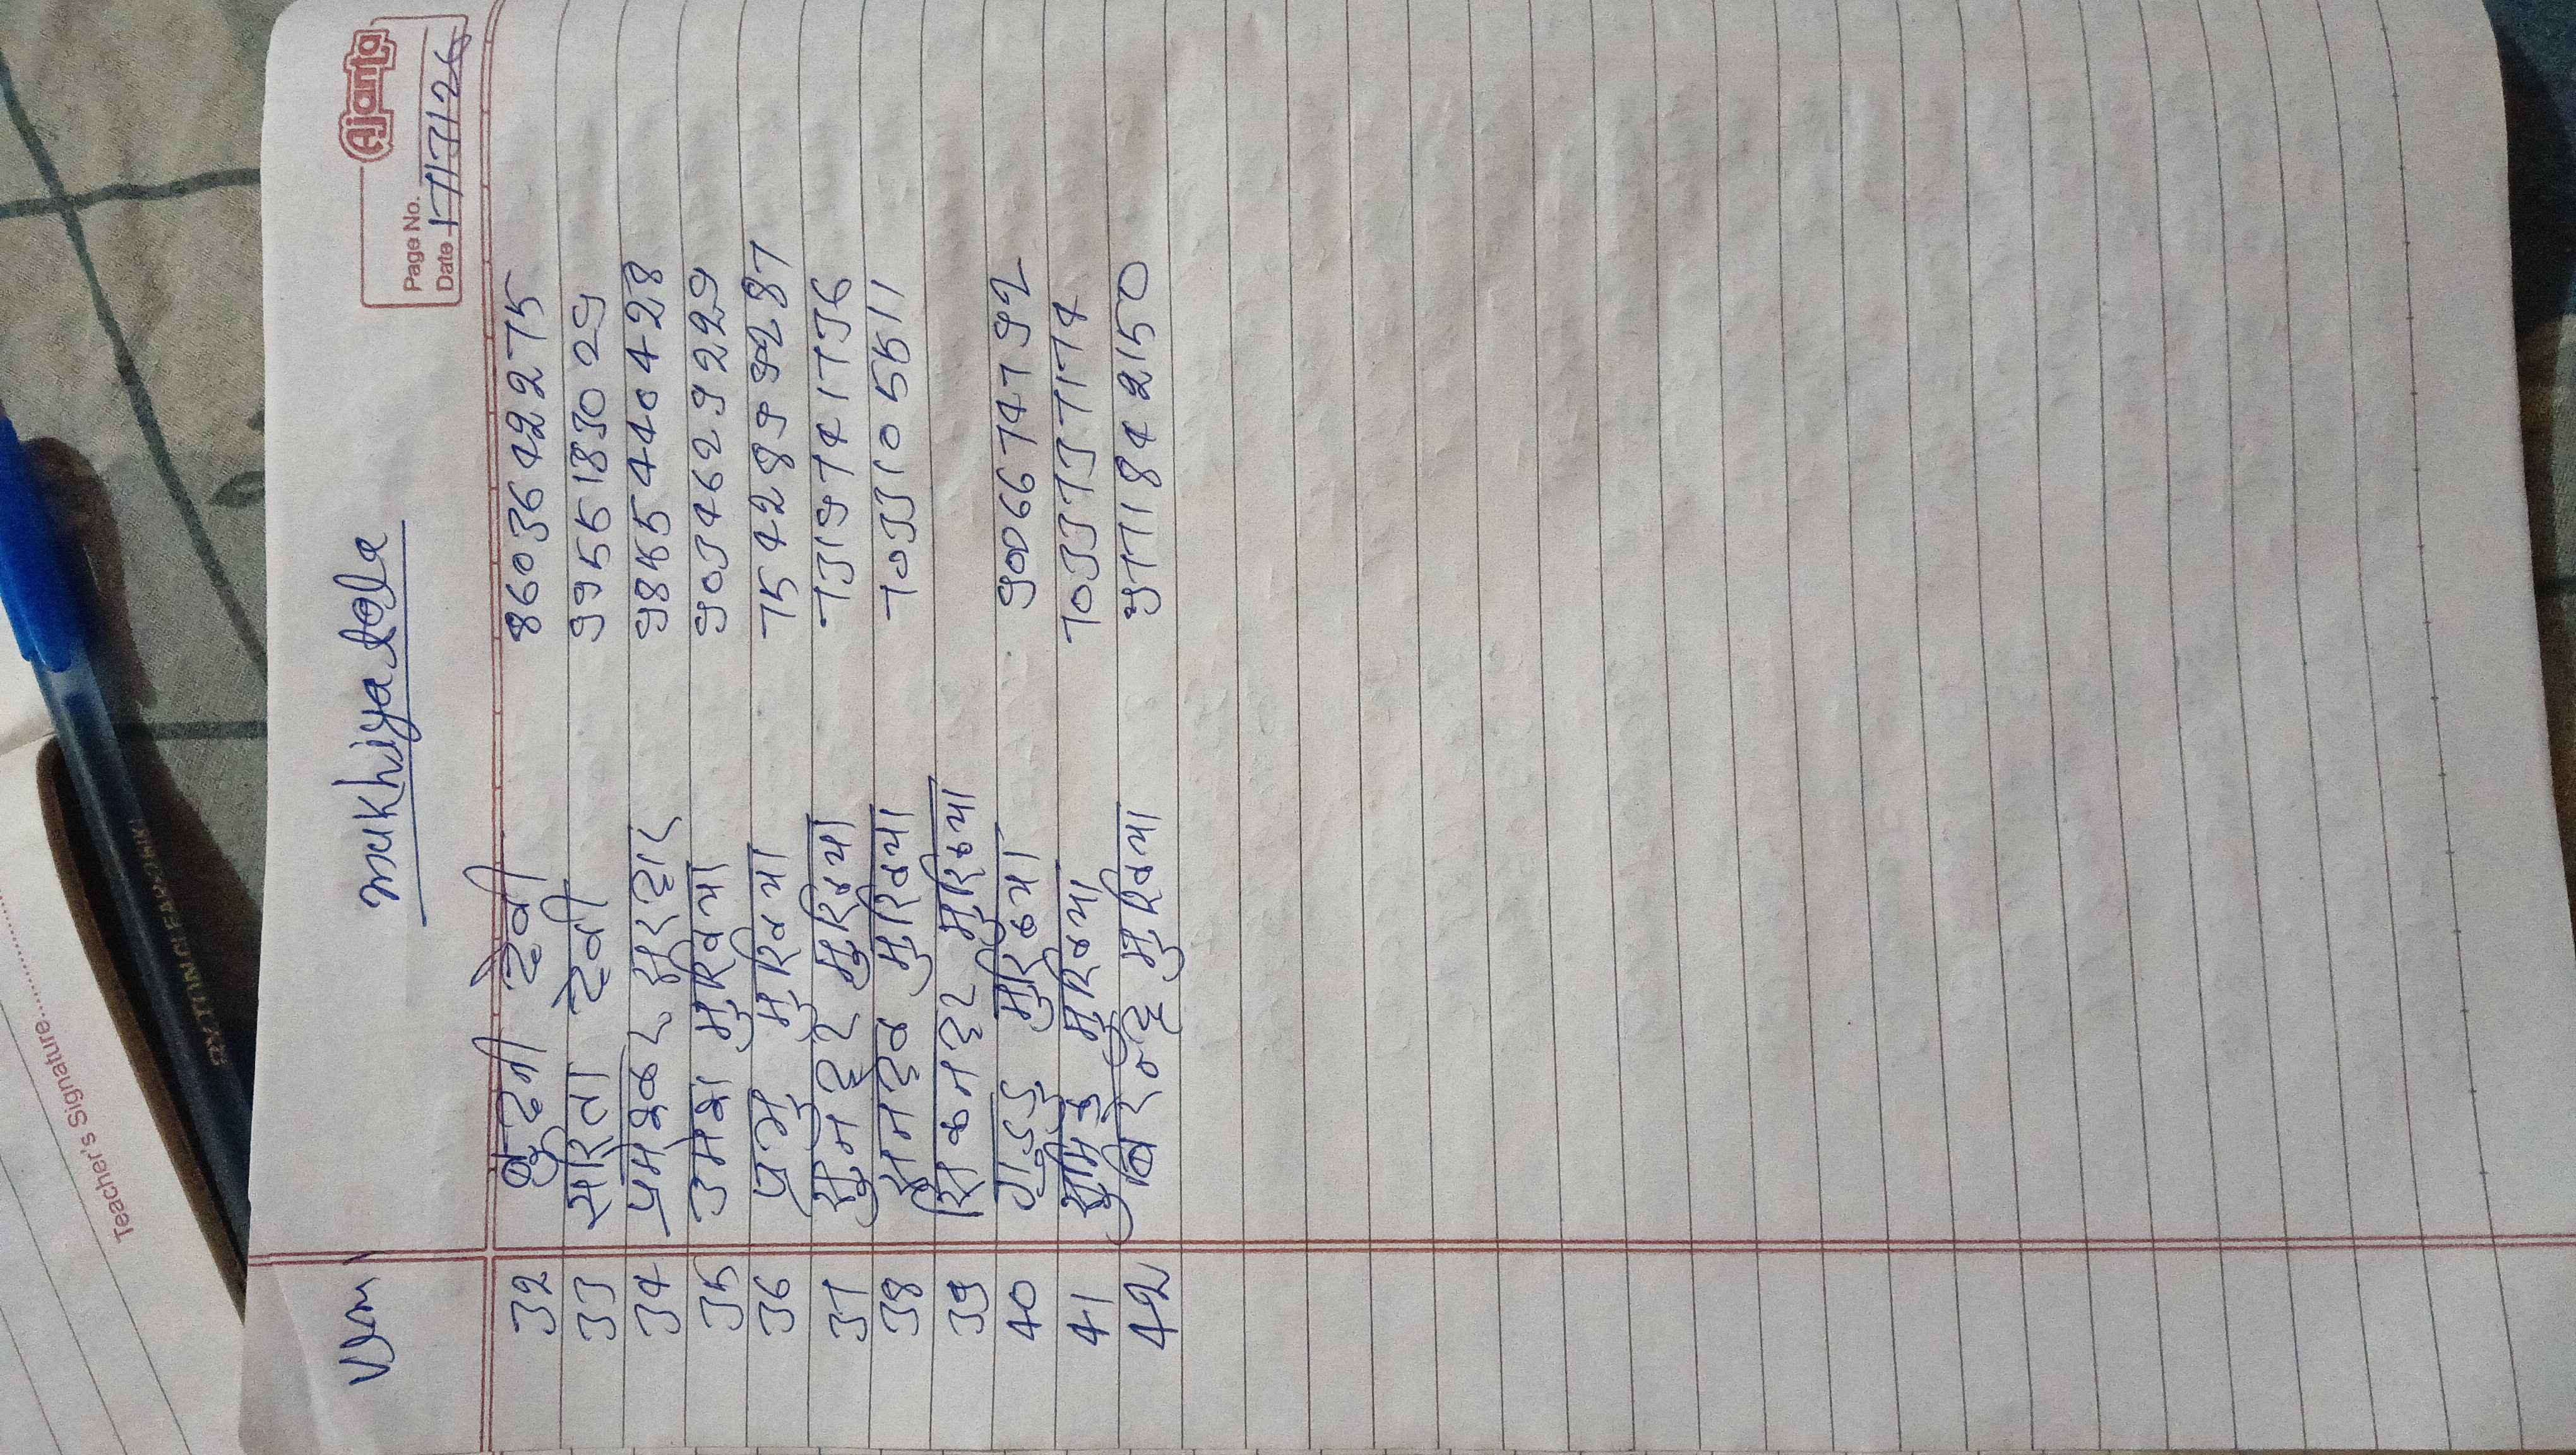 Ajanta
Page No.
Date 17/3/26
Vem mukhiya tola
32 बुदनी देवी 8603642275
33 सरिता देवी 9955183029
34 प्रमेश्वर सरदार 9845440428
35 उमेश मुखिया 9034629229
36 प्रभु मुखिया 7542899287
37 मुखिया 7319741736
38 मुखिया 7033105511
39 सिकनदर मुखिया
40 गुडडु मुखिया 9006674792
41 सुमित मुखिया 7033737174
42 विरेन्द्र मुखिया 9771842150
Teacher's Signature